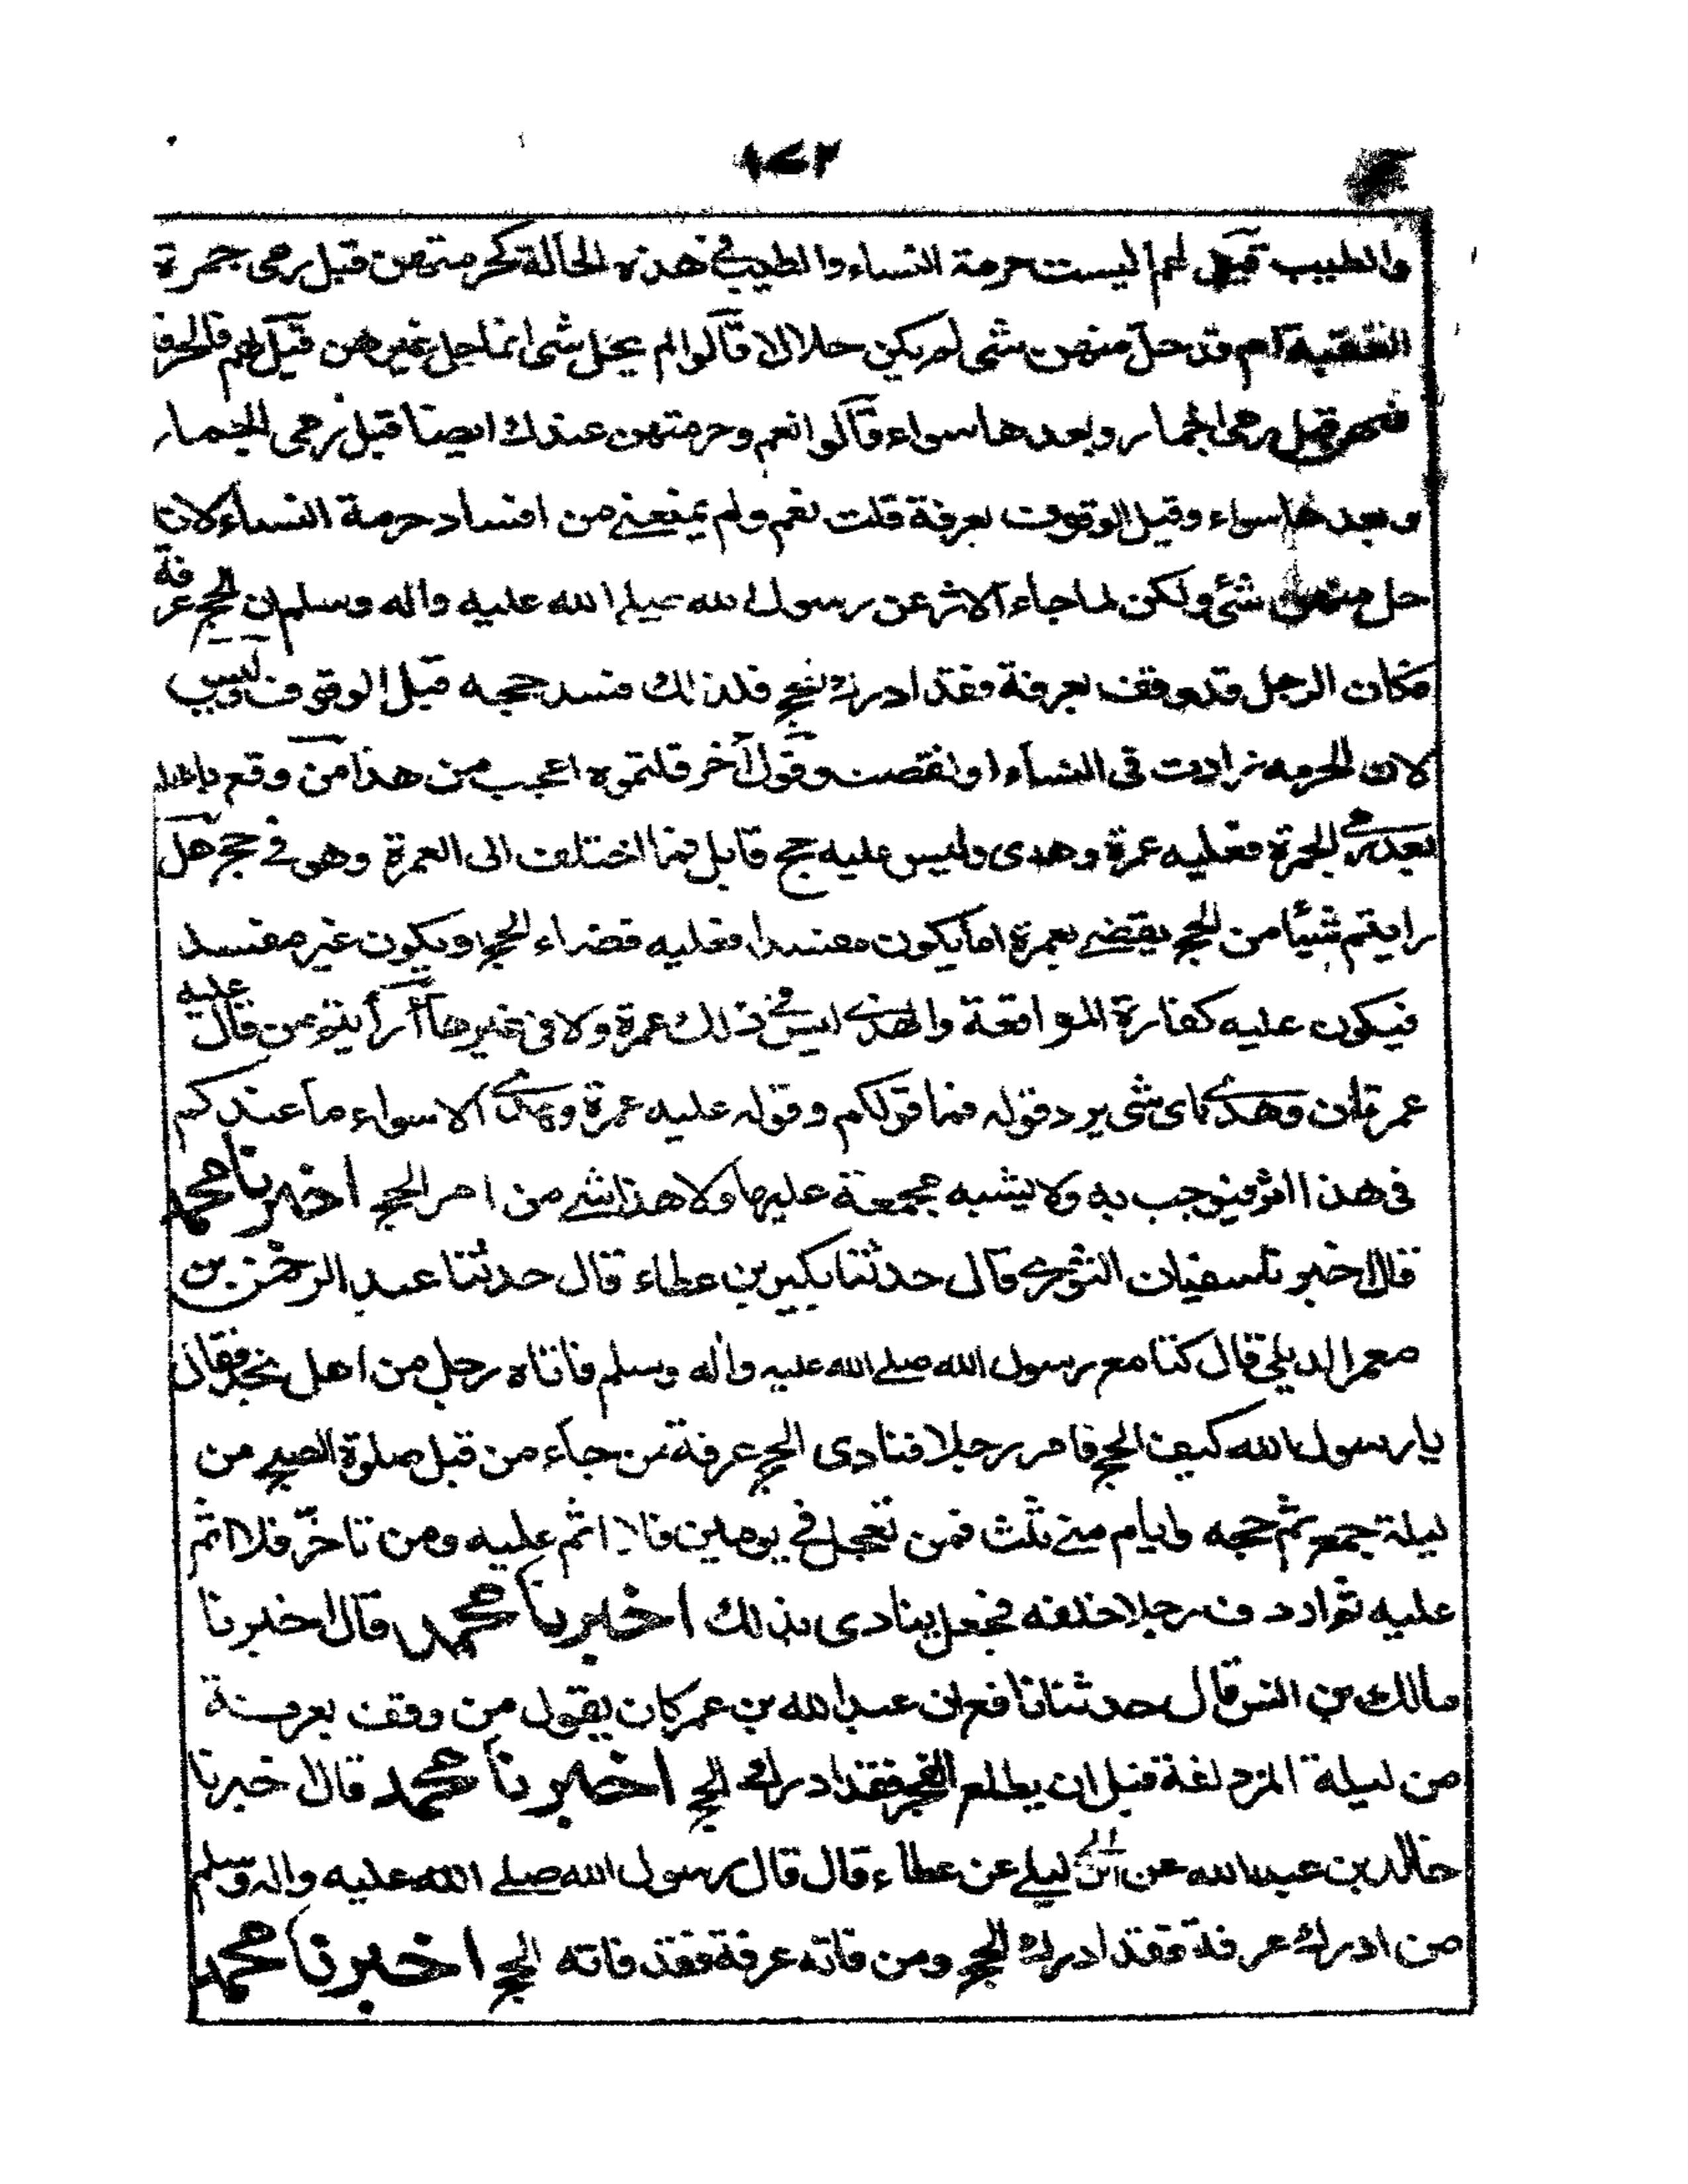 ١٧٢
والطيب قيل لهم اليست حرمة النساء والطيب في هذه الحالة كحرمتهن قبل رمى جمرة
العقبة ام قد حل منهن شى لم يكن حلالا قالوا لم يحل شى انما حل غيرهن قيل لهم فالحرمة
قبل رمى الجمار وبعدها سواء قالوا نعم وحرمتهن عندك ايضا قبل رمى الجمار
وبعدها سواء وقبل الوقوف بعرفة قلت نعم ولم يمنعنے من افساد حرمة النساء لان
حل منهن شئ ولكن لما جاء الاثر عن رسول الله صلے الله عليه واله وسلم ان الحج عرفة
فكان الرجل قد وقف بعرفة فقد ادرك الحج فلذلك فسد حجه قبل الوقوف وليس
لان الحرمه زادت فى النساء او نقصت وقول اخر قلتموه اعجب من هذا من وقع باهله
بعد رمى الجمرة فعليه عمرة وهدى وليس عليه حج قابل فما اختلف الى العمرة وهو في حج هل
رايتم شيئا من الحج يقضے بعمرة اما يكون مفسدا فعليه قضاء الحج او يكون غير مفسد
فيكون عليه كفارة المواقعة والهدى ليس في ذلك عمرة ولا فى غيرها أرأيتم من قال عليه
عمرتان وهدى باى شى يرد قوله فما قولكم وقوله عليه عمرة وهدى الا سواء ما عندكم
فى هذا اثر فيوجب به ولا يشبه مجمعة عليها ولا هذا شے من امر الحج اخبرنا محمد
قال اخبرنا سفيان الثورى قال حدثنا بكير بن عطاء قال حدثنا عبد الرحمن بن
معمر الديلي قال كنا مع رسول الله صلے الله عليه واله وسلم فاتاه رجل من اهل نجد فقال
يا رسول الله كيف الحج فامر رجلا فنادى الحج عرفة من جاء من قبل صلوة الصبح من
ليلة جمع تم حجه وايام منے ثلث فمن تعجل في يومين فلا اثم عليه ومن تاخر فلا اثم
عليه ثم اردف رجلا خلفه فجعل ينادى بذلك اخبرنا محمد قال اخبرنا
مالك بن انس قال حدثنا نافع ان عبد الله بن عمر كان يقول من وقف بعرفة
من ليلة المزدلفة قبل ان يطلع الفجر فقد ادرك الحج اخبرنا محمد قال اخبرنا
خالد بن عبد الله عن ابن ابى ليلے عن عطاء قال قال رسول الله صلے الله عليه واله وسلم
من ادرك عرفة فقد ادرك الحج ومن فاته عرفة فقد فاته الحج اخبرنا محمد